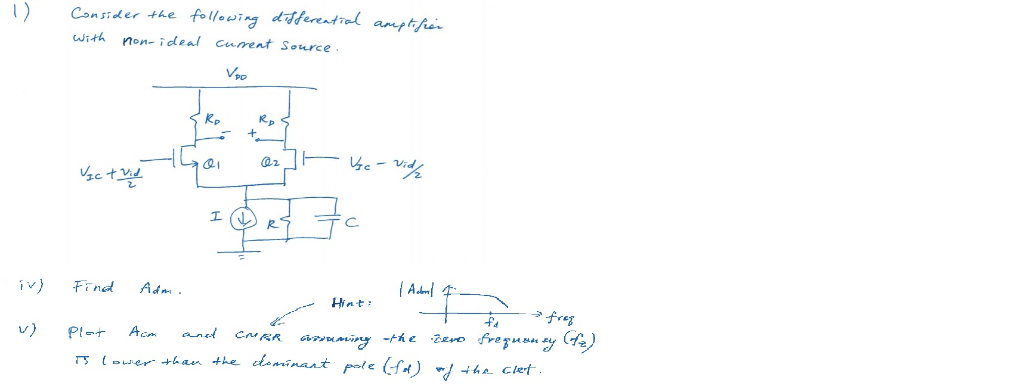 1) Consider the following differential amplifier
with non-ideal current source.
VDD
RD RD
- +
Q1 Q2
VIC + vid/2
VIC - vid/2
I R C
iv) Find Adm.
Hint: |Adm| fd → freq
v) Plot Acm and CMRR assuming the zero frequency (fz)
is lower than the dominant pole (fd) of the ckt.